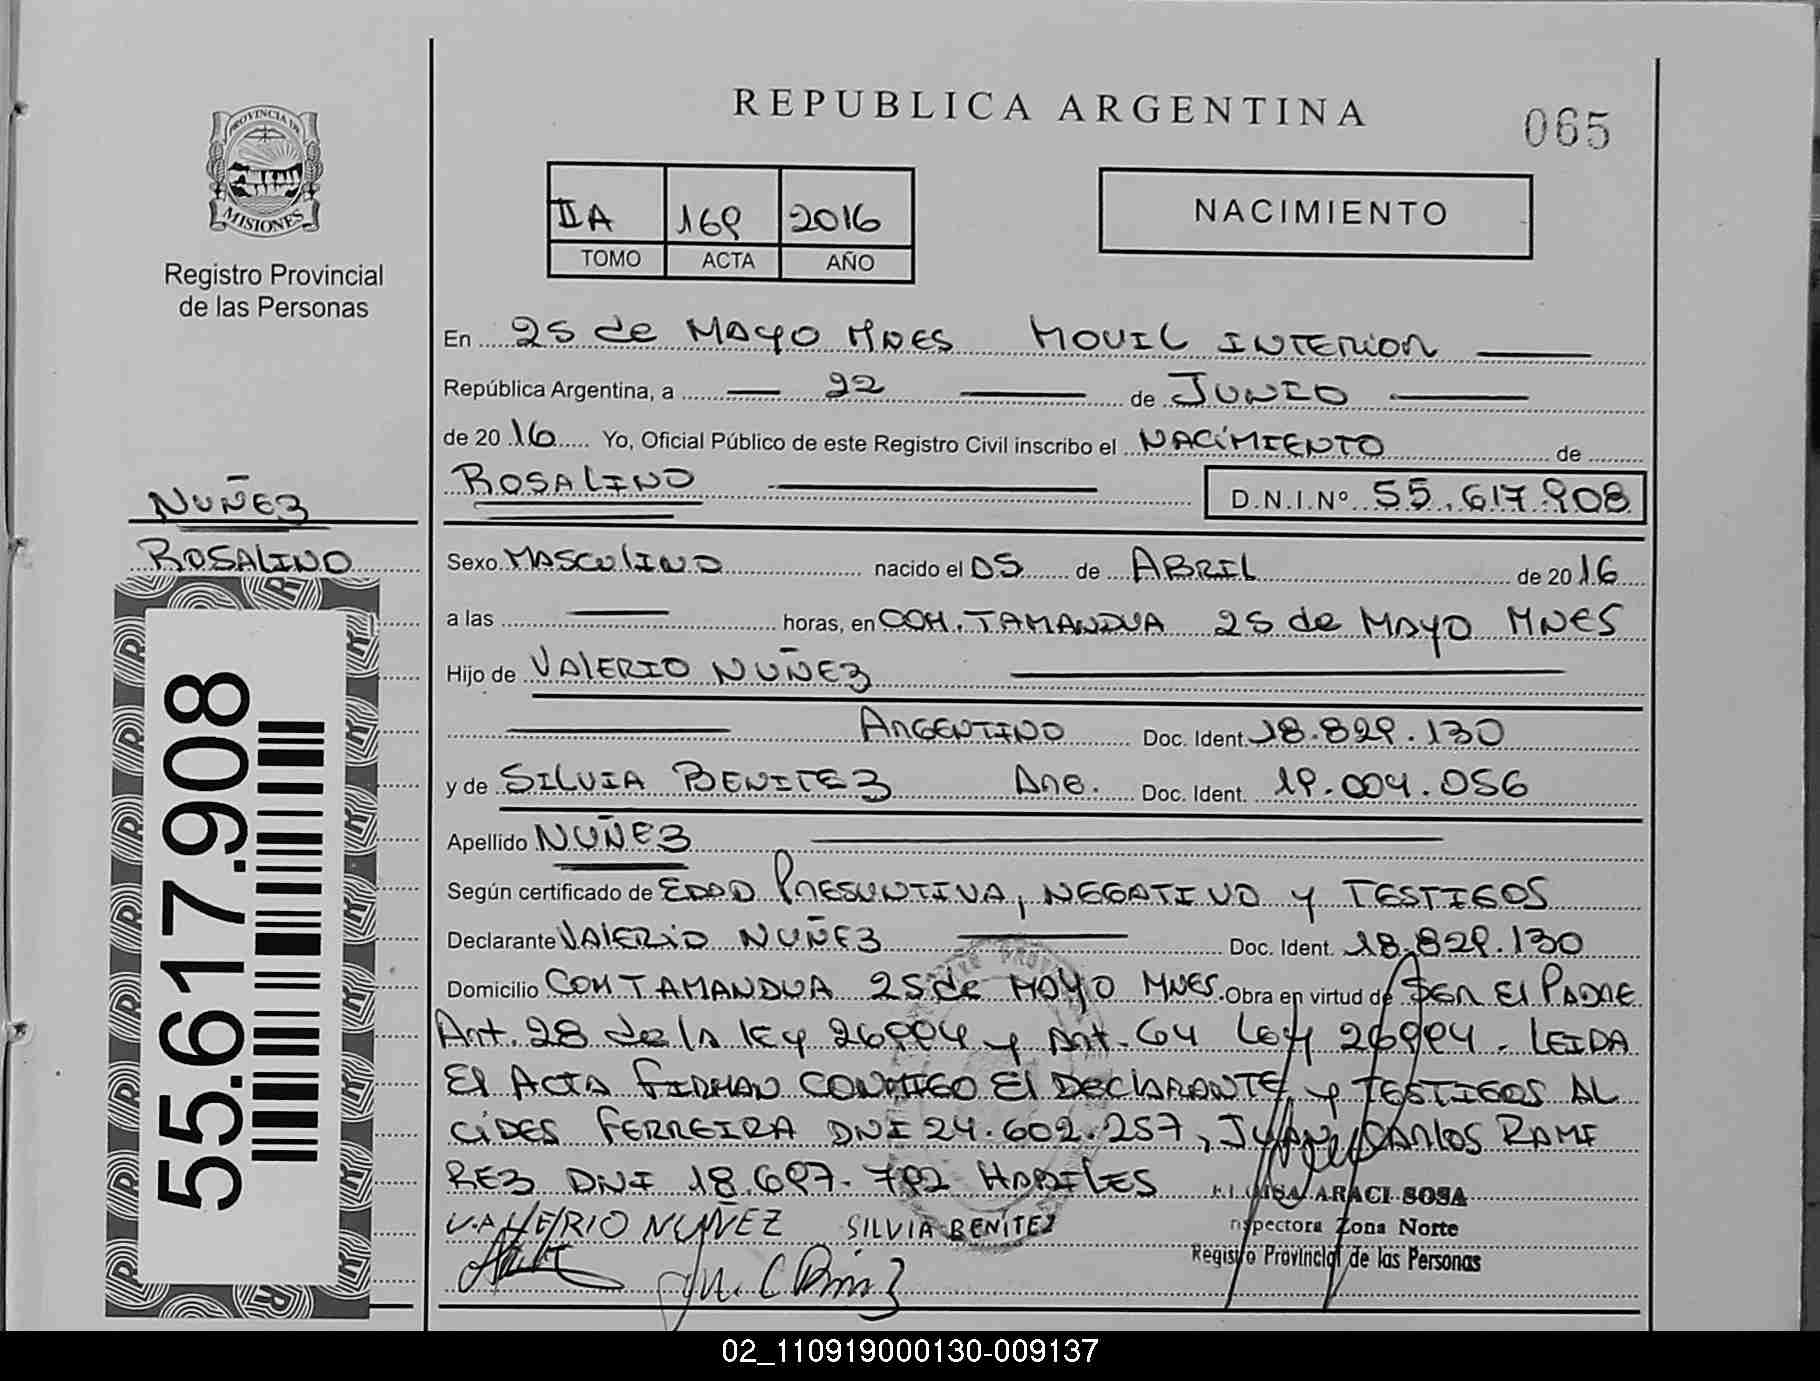 REPUBLICA ARGENTINA
065
PROVINCIA DE
MISIONES
Registro Provincial
de las Personas
IIA 169 2016
TOMO ACTA AÑO
NACIMIENTO
En 25 de MAYO MNES MOVIL INTERIOR
República Argentina, a 22 de JUNIO
de 2016 Yo, Oficial Público de este Registro Civil inscribo el NACIMIENTO de
ROSALINO D.N.I.Nº 55.617.908
NUÑEZ
ROSALINO
55.617.908
Sexo MASCULINO nacido el 05 de ABRIL de 2016
a las horas, en COM. TAMANDUA 25 de MAYO MNES
Hijo de VALERIO NUÑEZ
ARGENTINO Doc. Ident. 18.829.130
y de SILVIA BENITEZ ARG. Doc. Ident. 19.004.056
Apellido NUÑEZ
Según certificado de EDAD PRESUNTIVA, NEGATIVO y TESTIGOS
Declarante VALERIO NUÑEZ Doc. Ident. 18.829.130
Domicilio COM TAMANDUA 25 de MAYO MNES. Obra en virtud de SER El PADRE
Art. 28 de la ley 26994 y Art. 64 Ley 26994. LEIDA
El ACTA FIRMAN CONMIGO El DEClARANTE y TESTIGOS AL
CIDES FERREIRA DNI 24.602.257, JUAN CARLOS RAMI
REZ DNI 18.697.792 HABILES
VALERIO NUÑEZ SILVIA BENÍTEZ
ARACI SOSA
nspectora Zona Norte
Registro Provincial de las Personas
02_110919000130-009137